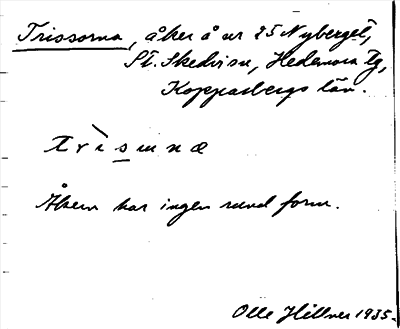 Trissorna, åker å nr 25 Nyberget,
St. Skedvi sn, Hedemora tg,
Kopparbergs län.
trìsɯnæ
Åkern har ingen rund form.
Olle Hillner 1935.